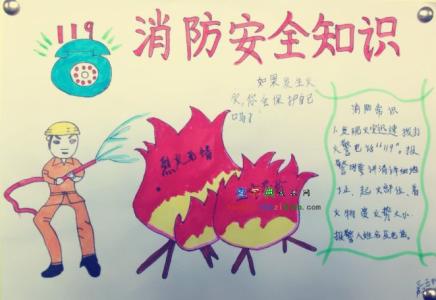 119
消防安全知识
如果发生火
灾,你会保护自己
吗?
烈火无情
消防常识
1.发现火灾迅速拨打
火警电话“119”。报
警时要讲清详细地
址、起火部位、着
火物质火势大小、
报警人姓名及电话。